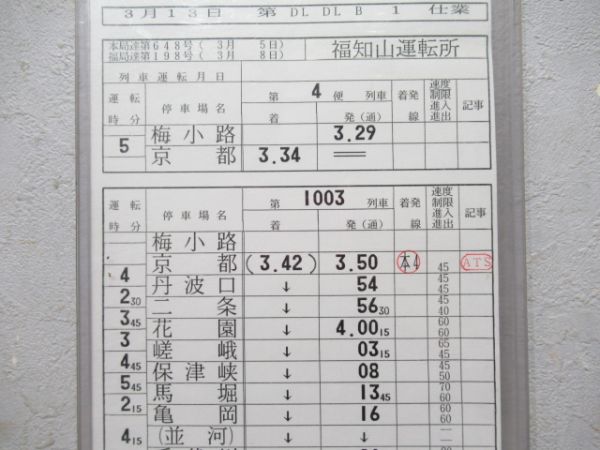 3月13日 第 DL DL B 1 仕業
本局達第648号( 3月 5日)
福局達第198号( 3月 8日)
福知山運転所
列車運転月日
運転時分 停車場名 第 4 便 列車 着発線 速度制限進入進出 記事
着 発(通)
梅小路 3.29
5 京都 3.34 ==
運転時分 停車場名 第 1003 列車 着発線 速度制限進入進出 記事
着 発(通)
梅小路
京都 (3.42) 3.50 本4 45 ATS
4 丹波口 ↓ 54 45 45
2 30 二条 ↓ 56 30 45 40
3 45 花園 ↓ 4.00 15 60 60
3 嵯峨 ↓ 03 15 65 45
4 45 保津峡 ↓ 08 45 50
5 45 馬堀 ↓ 13 45 70 60
2 15 亀岡 ↓ 16 60 60
4 15 (並河) ↓ ↓ — —